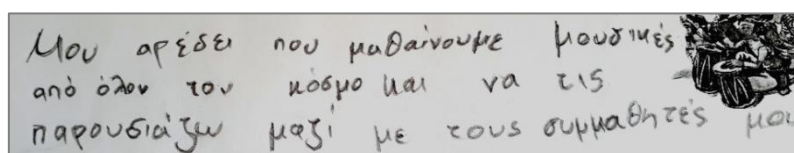 Μου αρέσει που μαθαίνουμε μουσικές
από όλον τον κόσμο και να τις
παρουσιάζω μαζί με τους συμμαθητές μου